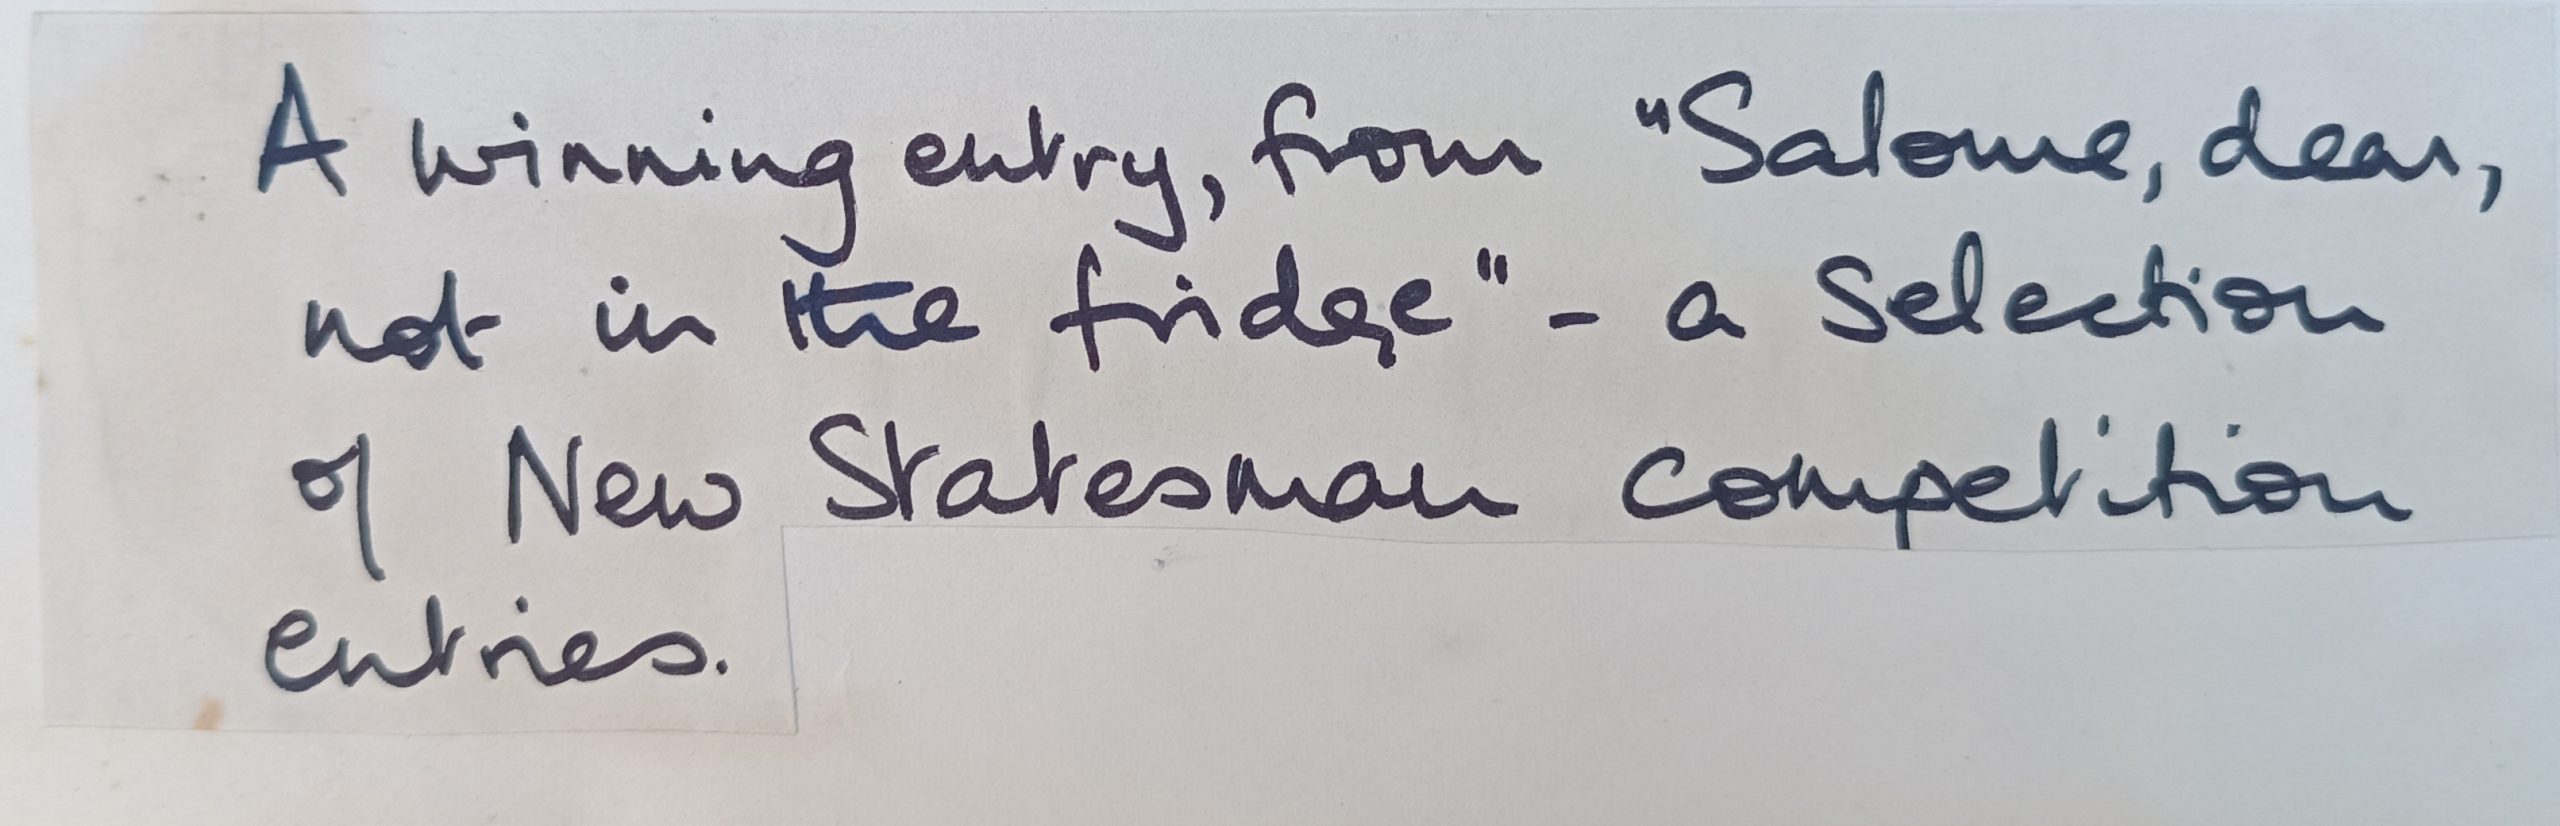 A winning entry, from "Salome, dear,
not in the fridge" - a selection
of New Statesman competition
entries.